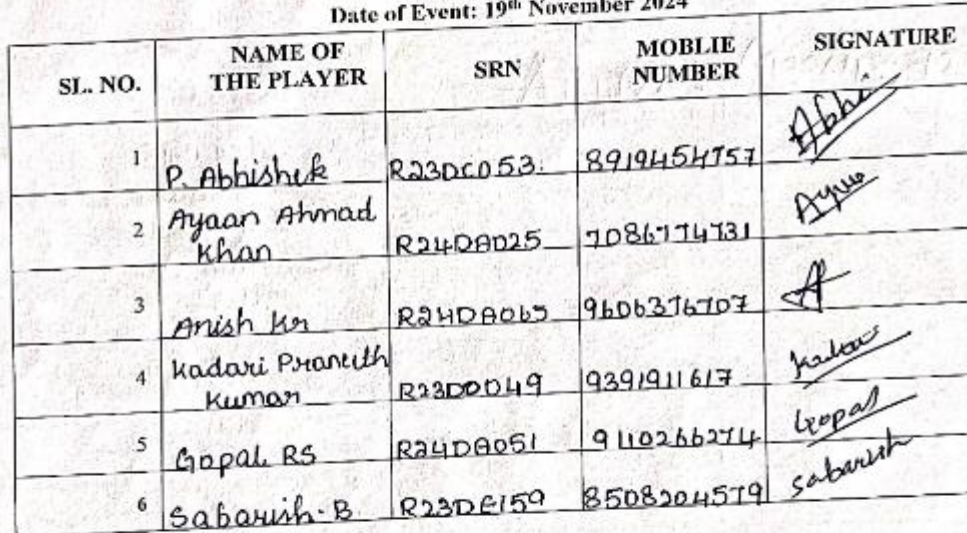 Date of Event: 19th November 2024
SL. NO. NAME OF THE PLAYER SRN MOBLIE NUMBER SIGNATURE
1 P. Abhishek R23DC053. 8919454757 Abhi
2 Ayaan Ahmad Khan R24DA025 7086774731
3 Anish Kr R24DA065 9606376707 A
4 Kadari Praneeth Kumar R23DD049 9391911617
5 Gopal RS R24DA051 9110266274 Gopal
6 Sabarish. B R23DE159 8508204579 Sabarish